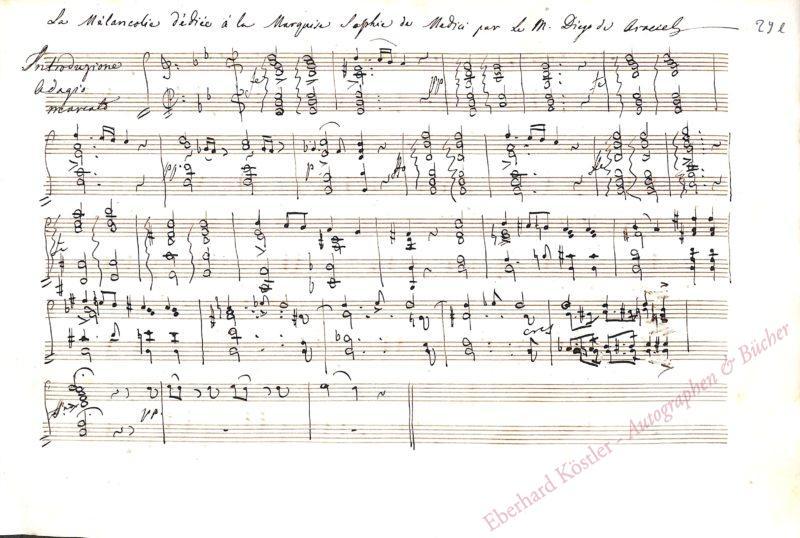 La Mélancolie dédiée à la Marquise Sophie de Medici par Le M. Diego de
Introduzione
Adagio
marcato
pp
pp
p
cres
pp
Eberhard Köstler - Autographen & Bücher